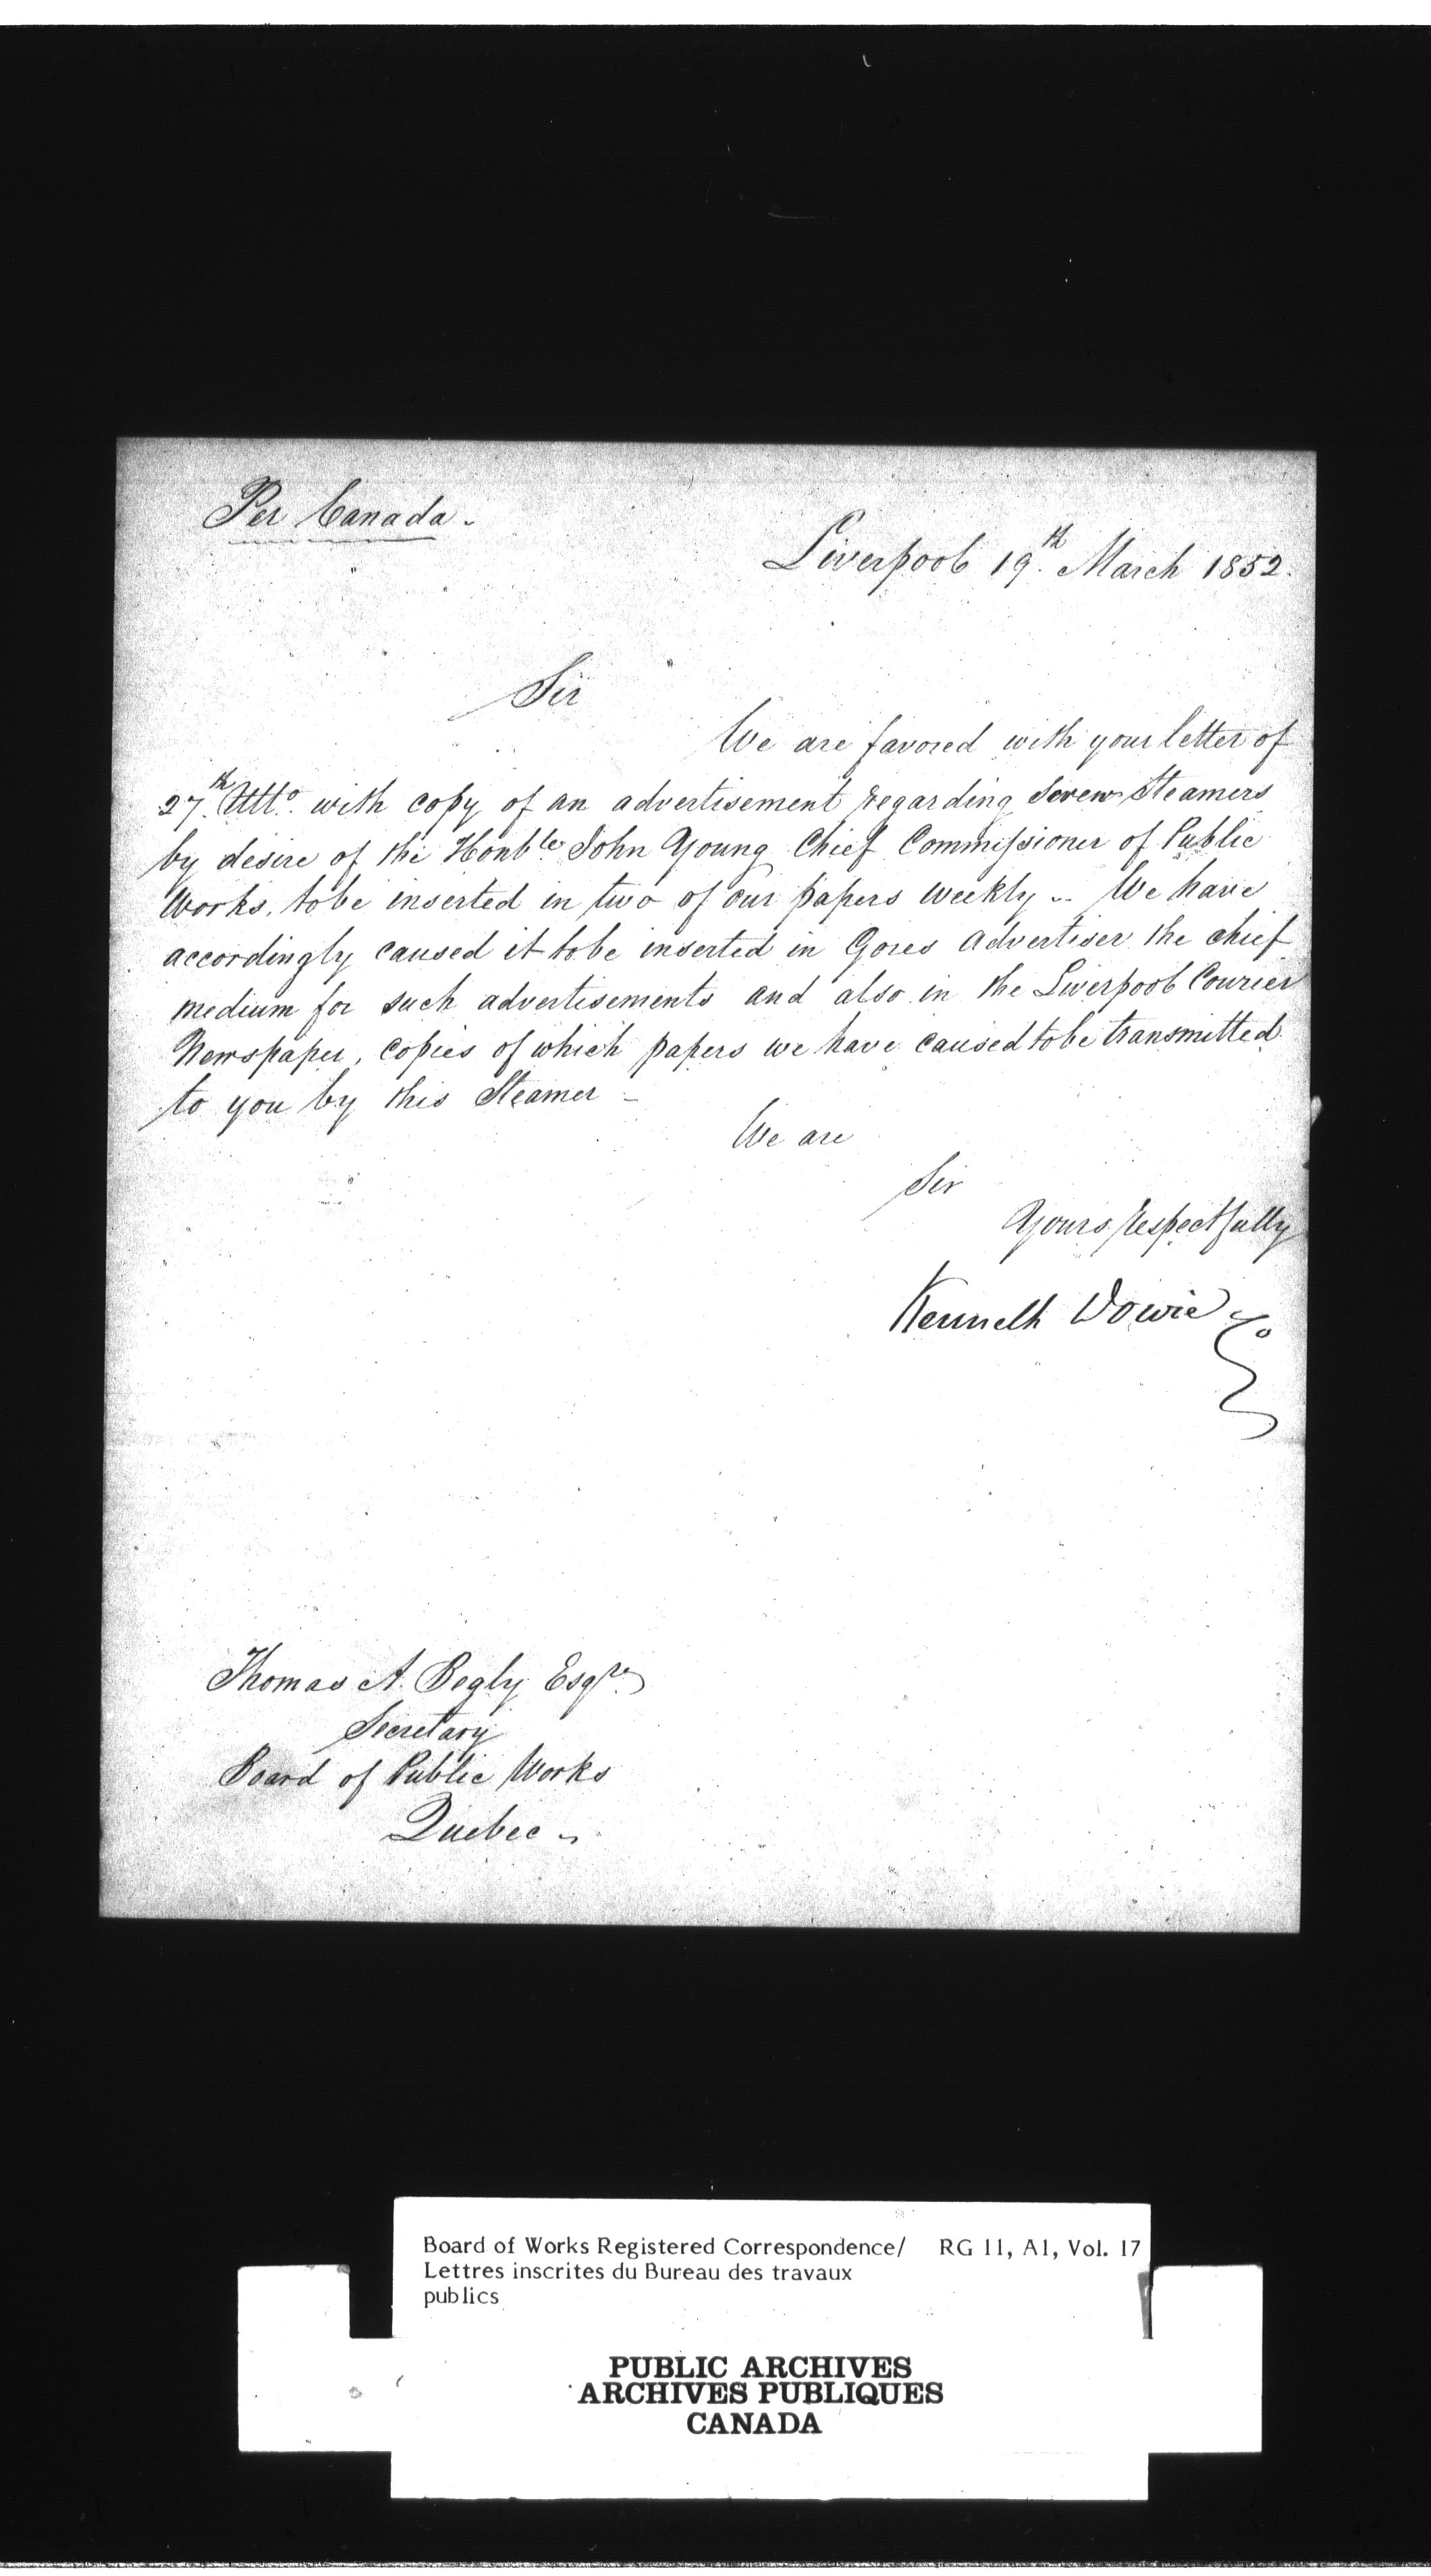 Per Canada.
Liverpool 19th. March 1852.
Sir
We are favored with your letter of
27th. Ulto. with copy of an advertisement regarding Screw Steamers
by desire of the Honble. John Young Chief Commissioner of Public
Works, to be inserted in two of our papers weekly .. We have
accordingly caused it to be inserted in Gores Advertiser the chief
medium for such advertisements and also in the Liverpool Courier
Newspaper, copies of which papers we have caused to be transmitted
to you by this Steamer –
We are
Sir
Yours respectfully
Kenneth Dowie & Co
Thomas A. Begly Esqre.
Secretary
Board of Public Works
Quebec –
Board of Works Registered Correspondence/ RG 11, A1, Vol. 17
Lettres inscrites du Bureau des travaux
publics
PUBLIC ARCHIVES
ARCHIVES PUBLIQUES
CANADA